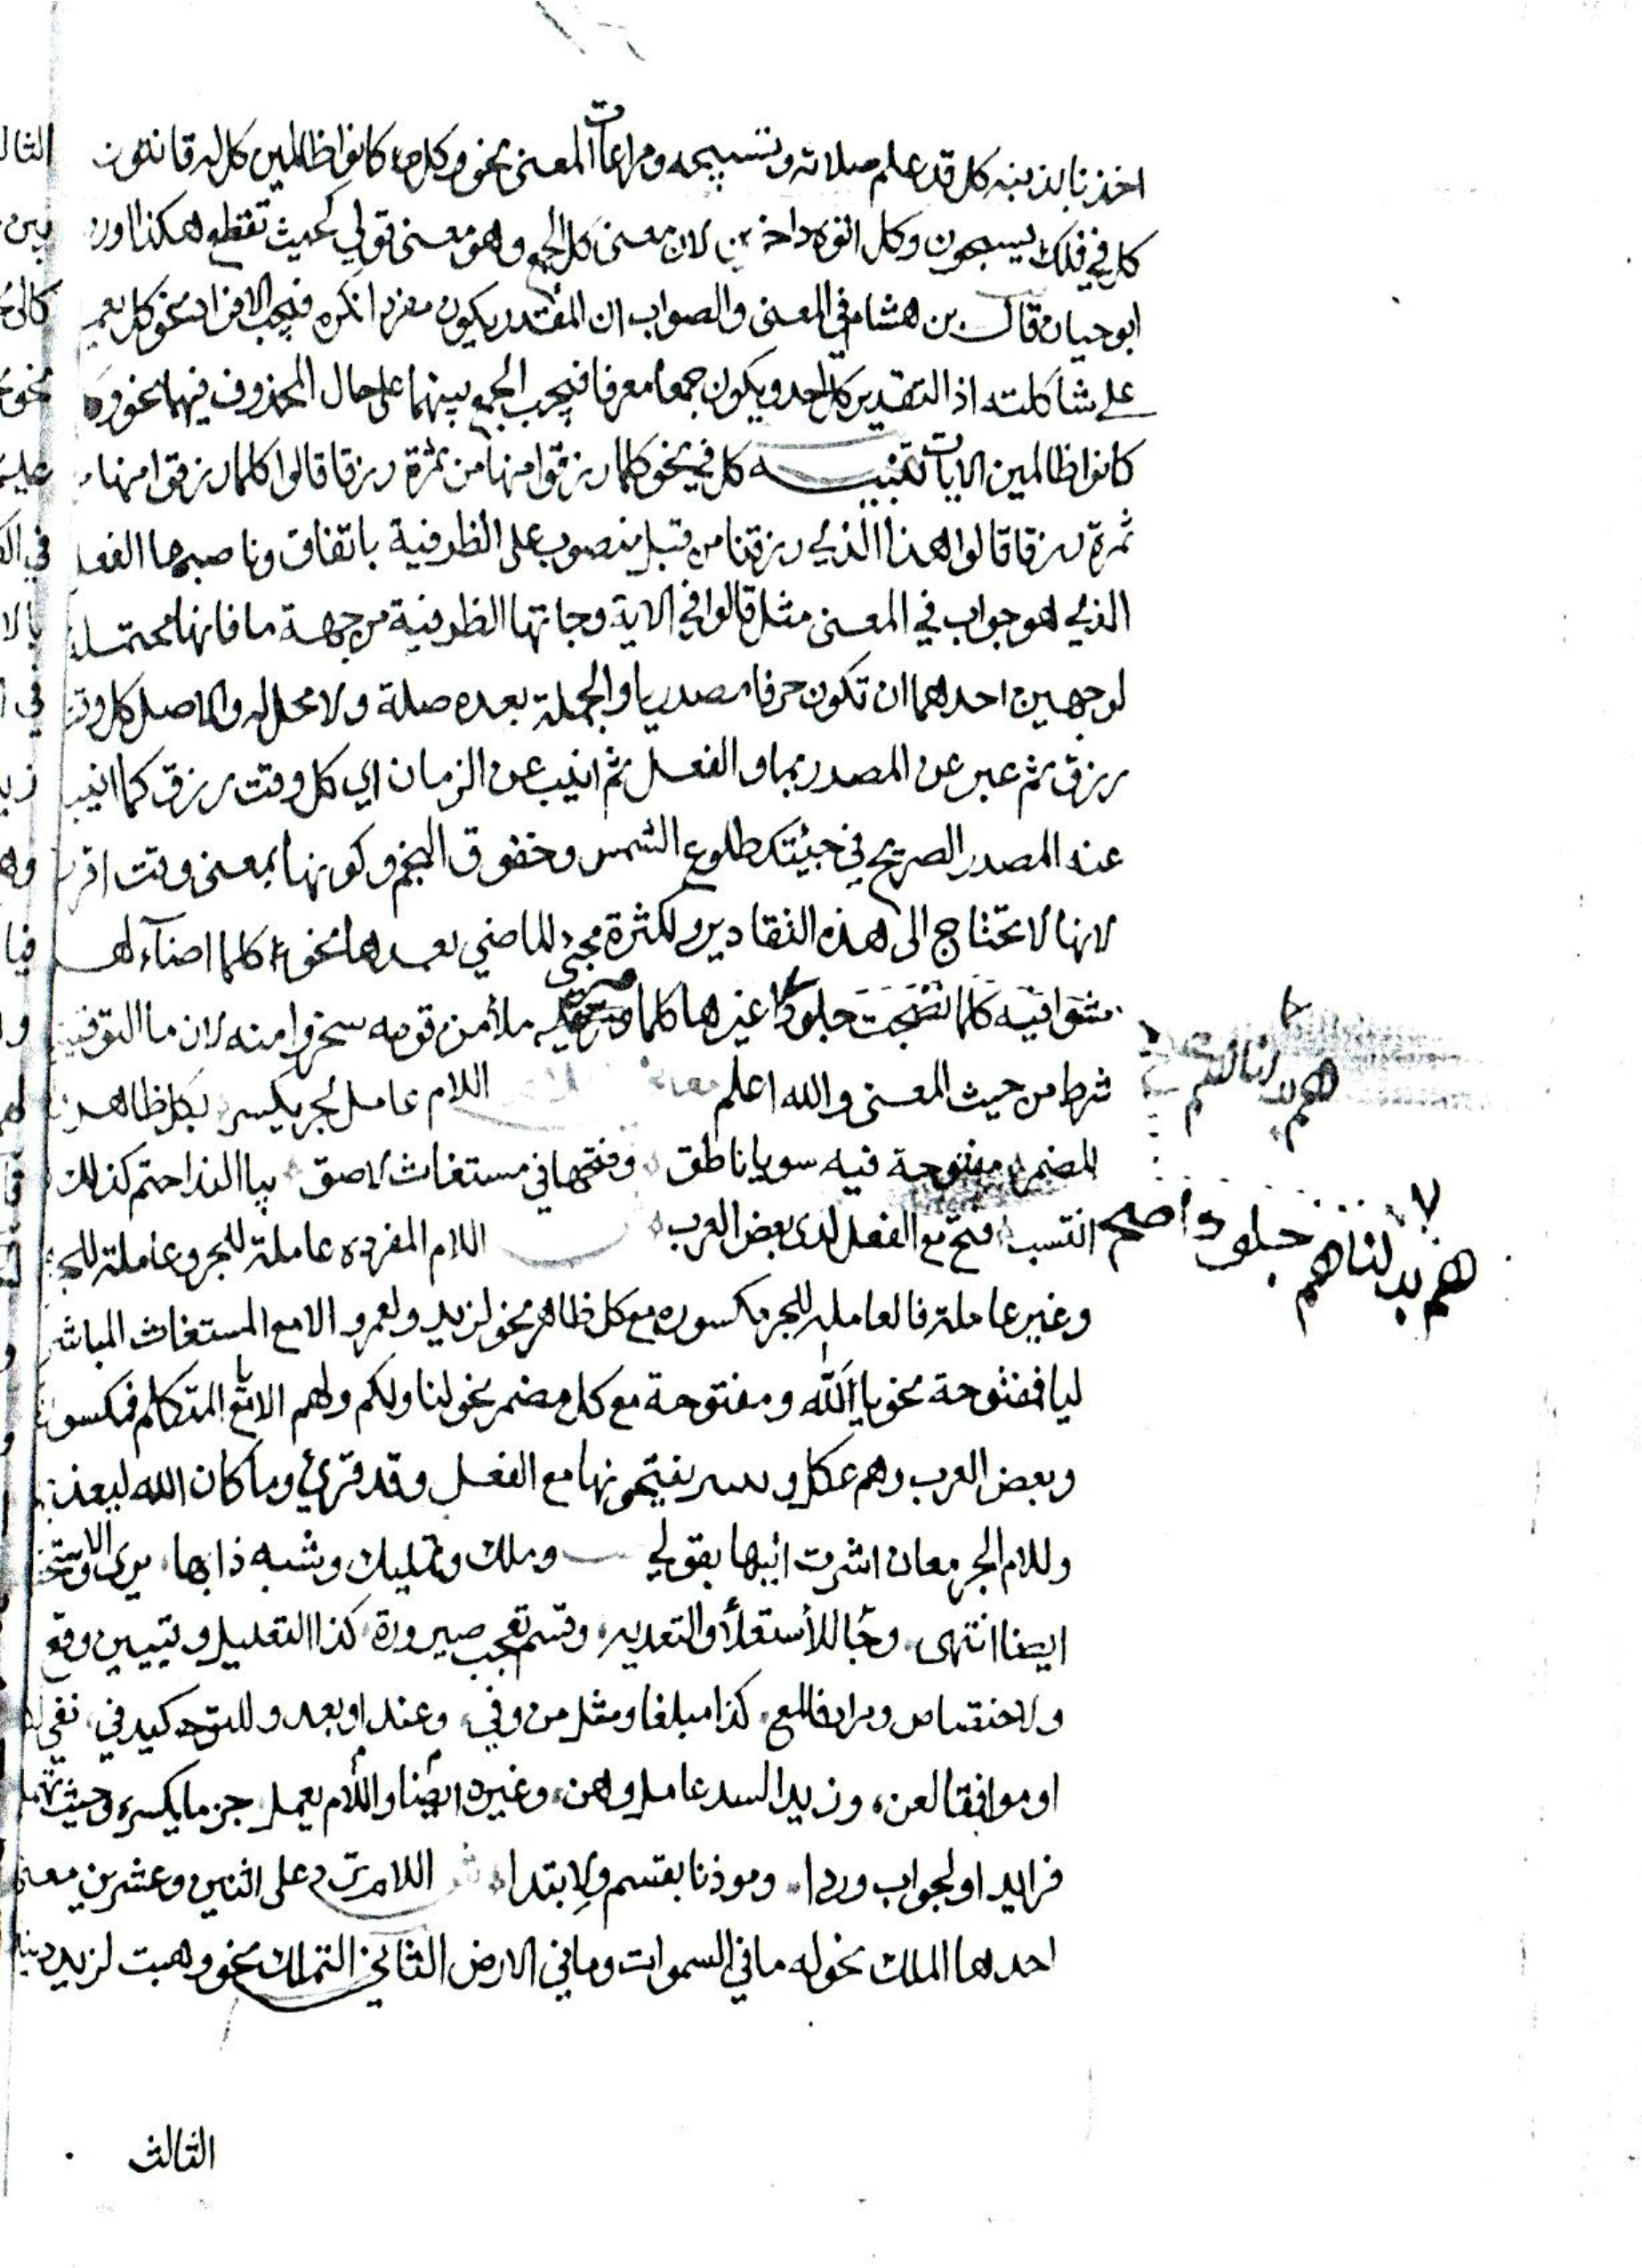 اخذنا بذنبه كل قد علم صلاته وتسبيحه ومراعات المعنى نحو وكل كانوا ظالمين كل له قانتون
كل في فلك يسبحون وكل اتوه داخرين لان معنى كل الجمع وهو معنى قولي بحيث تقطع هكذا اورد
ابو حيان قال بن هشام في المغنى والصواب ان المقدر يكون مفردا نكره فيجب الافراد نحو كل يعمل
على شاكلته اذ التقدير كل احد ويكون جمعا معرفا فيجب الجمع بينهما على حال المحذوف فيهما نحو وكل
كانوا ظالمين الايات تنبيه كل في نحو كلما رزقوا منها من ثمرة رزقا قالوا كلما رزقوا منها من
ثمرة رزقا قالوا هذا الذي رزقنا من قبل منصوب على الظرفية باتفاق وناصبها الفعل
الذي هو جواب في المعنى مثل قالوا في الاية وجاتها الظرفية من جهة ما فانها محتملة
لوجهين احدهما ان تكون حرفا مصدريا والجملة بعده صلة ولا محل له والاصل كل وقت
رزق ثم عبر عن المصدر بما والفعل ثم انيب عن الزمان اي كل وقت رزق كما انيب
عنه المصدر الصريح في جيئتك طلوع الشمس وخفوق النجم وكونها بمعنى وقت اقرب
لانها لا تحتاج الى هذه التقادير ولكثرة مجئ الماضي بعدها نحو كلما اضآء لهم
مشوا فيه كلما نضجت جلودا غيرها كلما مر عليه ملأ من قومه سخروا منه لان ما التوقيتية
شرط من حيث المعنى والله اعلم اللام عامل لجر بكسر بكل ظاهر
لمضمر مفتوحة فيه سوى يا ناطق وفتحها في مستغاث لاصق بيا الندا حتم كذلك
انتسب فتح مع الفعل لدى بعض العرب اللام المفرده عاملة للجر وعاملة للجزم
وغير عاملة فالعاملة للجر مكسوره مع كل ظاهر نحو لزيد ولعمرو الا مع المستغاث المباشر
ليا فمفتوحة نحو يا لَلّه ومفتوحة مع كل مضمر نحو لنا ولكم ولهم الا مع يا المتكلم فمكسورة
وبعض العرب وهم عكل و يفتحونها مع الفعل وقد قرئ وما كان الله ليعذبهم
وللام الجر معان اشرت اليها بقولي وملك وتمليك وشبه ذا بها يرى والاستحقاق
ايضا انتهى وجا للاستعلا والتعديه وقسم تعجب صيرورة كذا التعليل وتبيين وقع
ولاختصاص ومرادفا لمع كذا مبلغا ومثل من وفي وعند او بعد وللتوكيد في نفي
او موافقا لعن وزيد السد عامل وهن وغيره ايضا واللام يعمل جزما بكسره وحيث
فزايد او لجواب وردا وموذنا بقسم ولابتدا اللام ترد على اثنين وعشرين معنى
احدها الملك نحو له ما في السموات وما في الارض الثاني التمليك نحو وهبت لزيد دينارا
الثالث
هم بدلناهم
هم بدلناهم جلودا صح